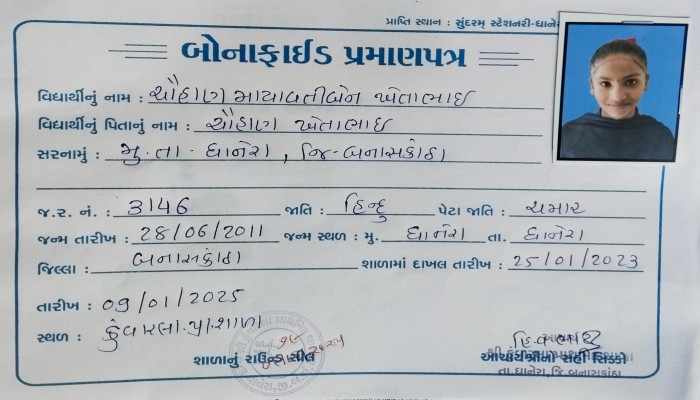 પ્રાપ્તિ સ્થાન : સુંદરમ્ સ્ટેશનરી-ધાને
બોનાફાઈડ પ્રમાણપત્ર
વિદ્યાર્થીનું નામ : ચૌહાણ માયાવતીબેન ખેતાભાઇ
વિદ્યાર્થીનું પિતાનું નામ : ચૌહાણ ખેતાભાઇ
સરનામું : મુ.તા - ધાનેરા, જિ-બનાસકાંઠા
જ.ર. નં. : 3146 જાતિ : હિન્દુ પેટા જાતિ : ચમાર
જન્મ તારીખ : 28/06/2011 જન્મ સ્થળ : મુ. ધાનેરા તા. ધાનેરા
જિલ્લા : બનાસકાંઠા શાળામાં દાખલ તારીખ : 25/01/2023
તારીખ : 09/01/2025
સ્થળ : કુંવારલા પ્રા.શાળા
શાળાનું રાઉન્ડ સીલ આચાર્યશ્રીની સહી સિક્કો
તા.ધાનેરા, જિ.બનાસકાંઠા